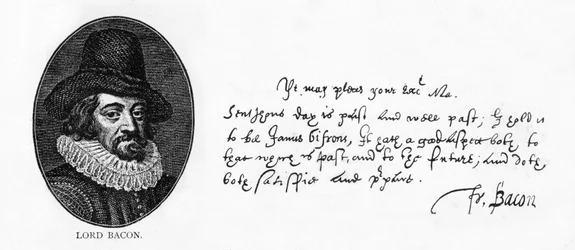 Yt may please your Exct Ma.
day is past and well past; I hold it
to be Janus bifrons, It hath a good aspect both to
that is past, and to the future; and doth
both satisfie and prepare.
Fr. Bacon
LORD BACON.